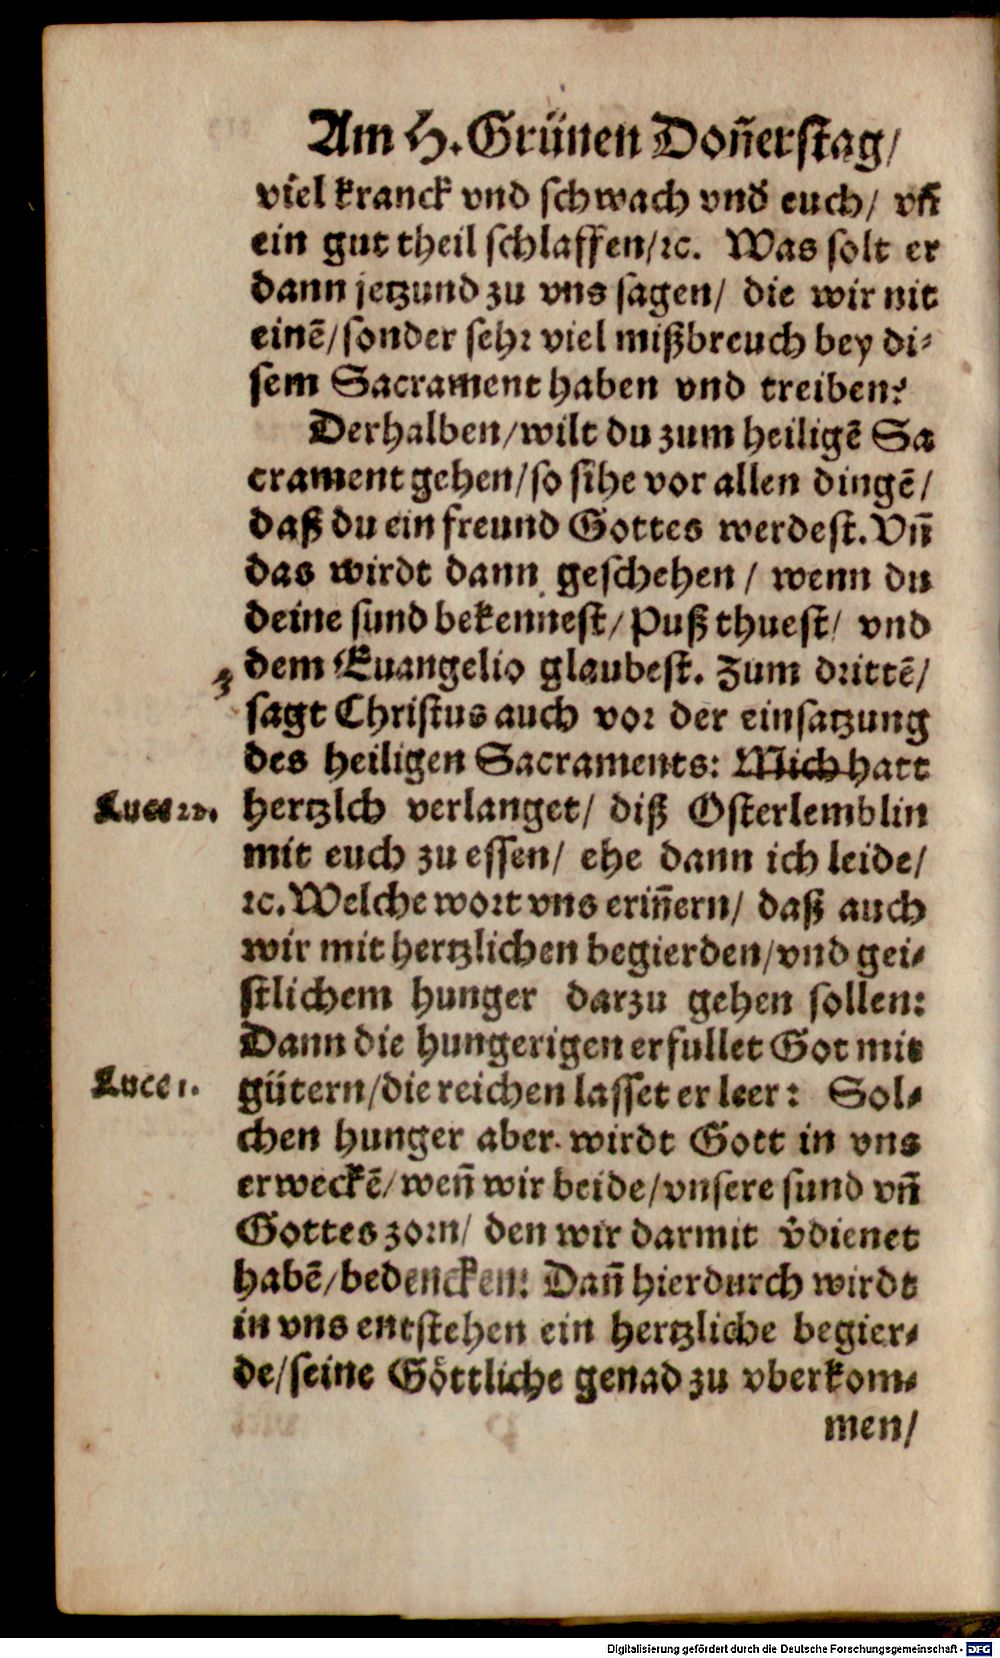 Am H. Grünen Doñerstag/
viel kranck vnd schwach vnd̃ euch/ vñ
ein gut theil schlaffen/ꝛc. Was solt er
dann jetzund zu vns sagen/ die wir nit
einẽ/sonder sehꝛ viel mißbreuch bey di⸗
sem Sacrament haben vnd treiben?
Derhalben/wilt du zum heiligẽ Sa
crament gehen/so sihe vor allen dingẽ/
daß du ein freund Gottes werdest. Vñ
das wirdt dann geschehen / wenn du
deine sund bekennest/ Puß thuest/ vnd
3 dem Euangelio glaubest. Zum dꝛittẽ/
sagt Christus auch voꝛ der einsatzung
des heiligen Sacraments: Mich hatt
Luce 22. hertzlch verlanget/ diß Osterlemblin
mit euch zu essen/ ehe dann ich leide/
ꝛc. Welche woꝛt vns eriñern/ daß auch
wir mit hertzlichen begierden/vnd gei⸗
stlichem hunger darzu gehen sollen:
Dann die hungerigen erfullet Got mit
Luce 1. gütern/die reichen lasset er leer: Sol⸗
chen hunger aber wirdt Gott in vns
erweckẽ/weñ wir beide/vnsere sund vñ
Gottes zoꝛn/ den wir darmit v̂dienet
habẽ/bedencken: Dañ hierdurch wirdt
in vns entstehen ein hertzliche begier⸗
de/seine Göttliche genad zu vberkom⸗
men/
Digitalisierung gefördert durch die Deutsche Forschungsgemeinschaft - DFG